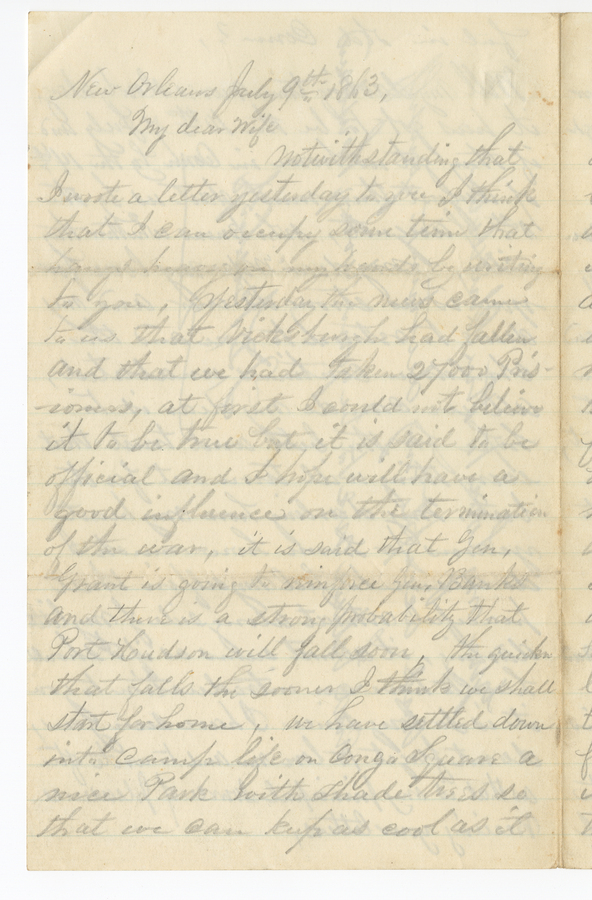 New Orleans July 9th 1863,
My dear Wife
Notwithstanding that
I wrote a letter yesterday to you I think
that I can occupy some time that
hangs heavy on my hands by writing
to you, Yesterday the news came
to us that Vicksburgh had fallen
and that we had taken 27000 Pris-
-ioners, at first I could not believe
it to be true but it is said to be
official and I hope will have a
good influence on the termination
of the war, it is said that Gen,
Grant is going to reinforce Gen, Banks
and there is a strong probability that
Port Hudson will fall soon, the quicker
that falls the sooner I think we shall
start for home, we have settled down
into camp life on Congo Square a
nice Park with shade trees so
that we can keep as cool as it